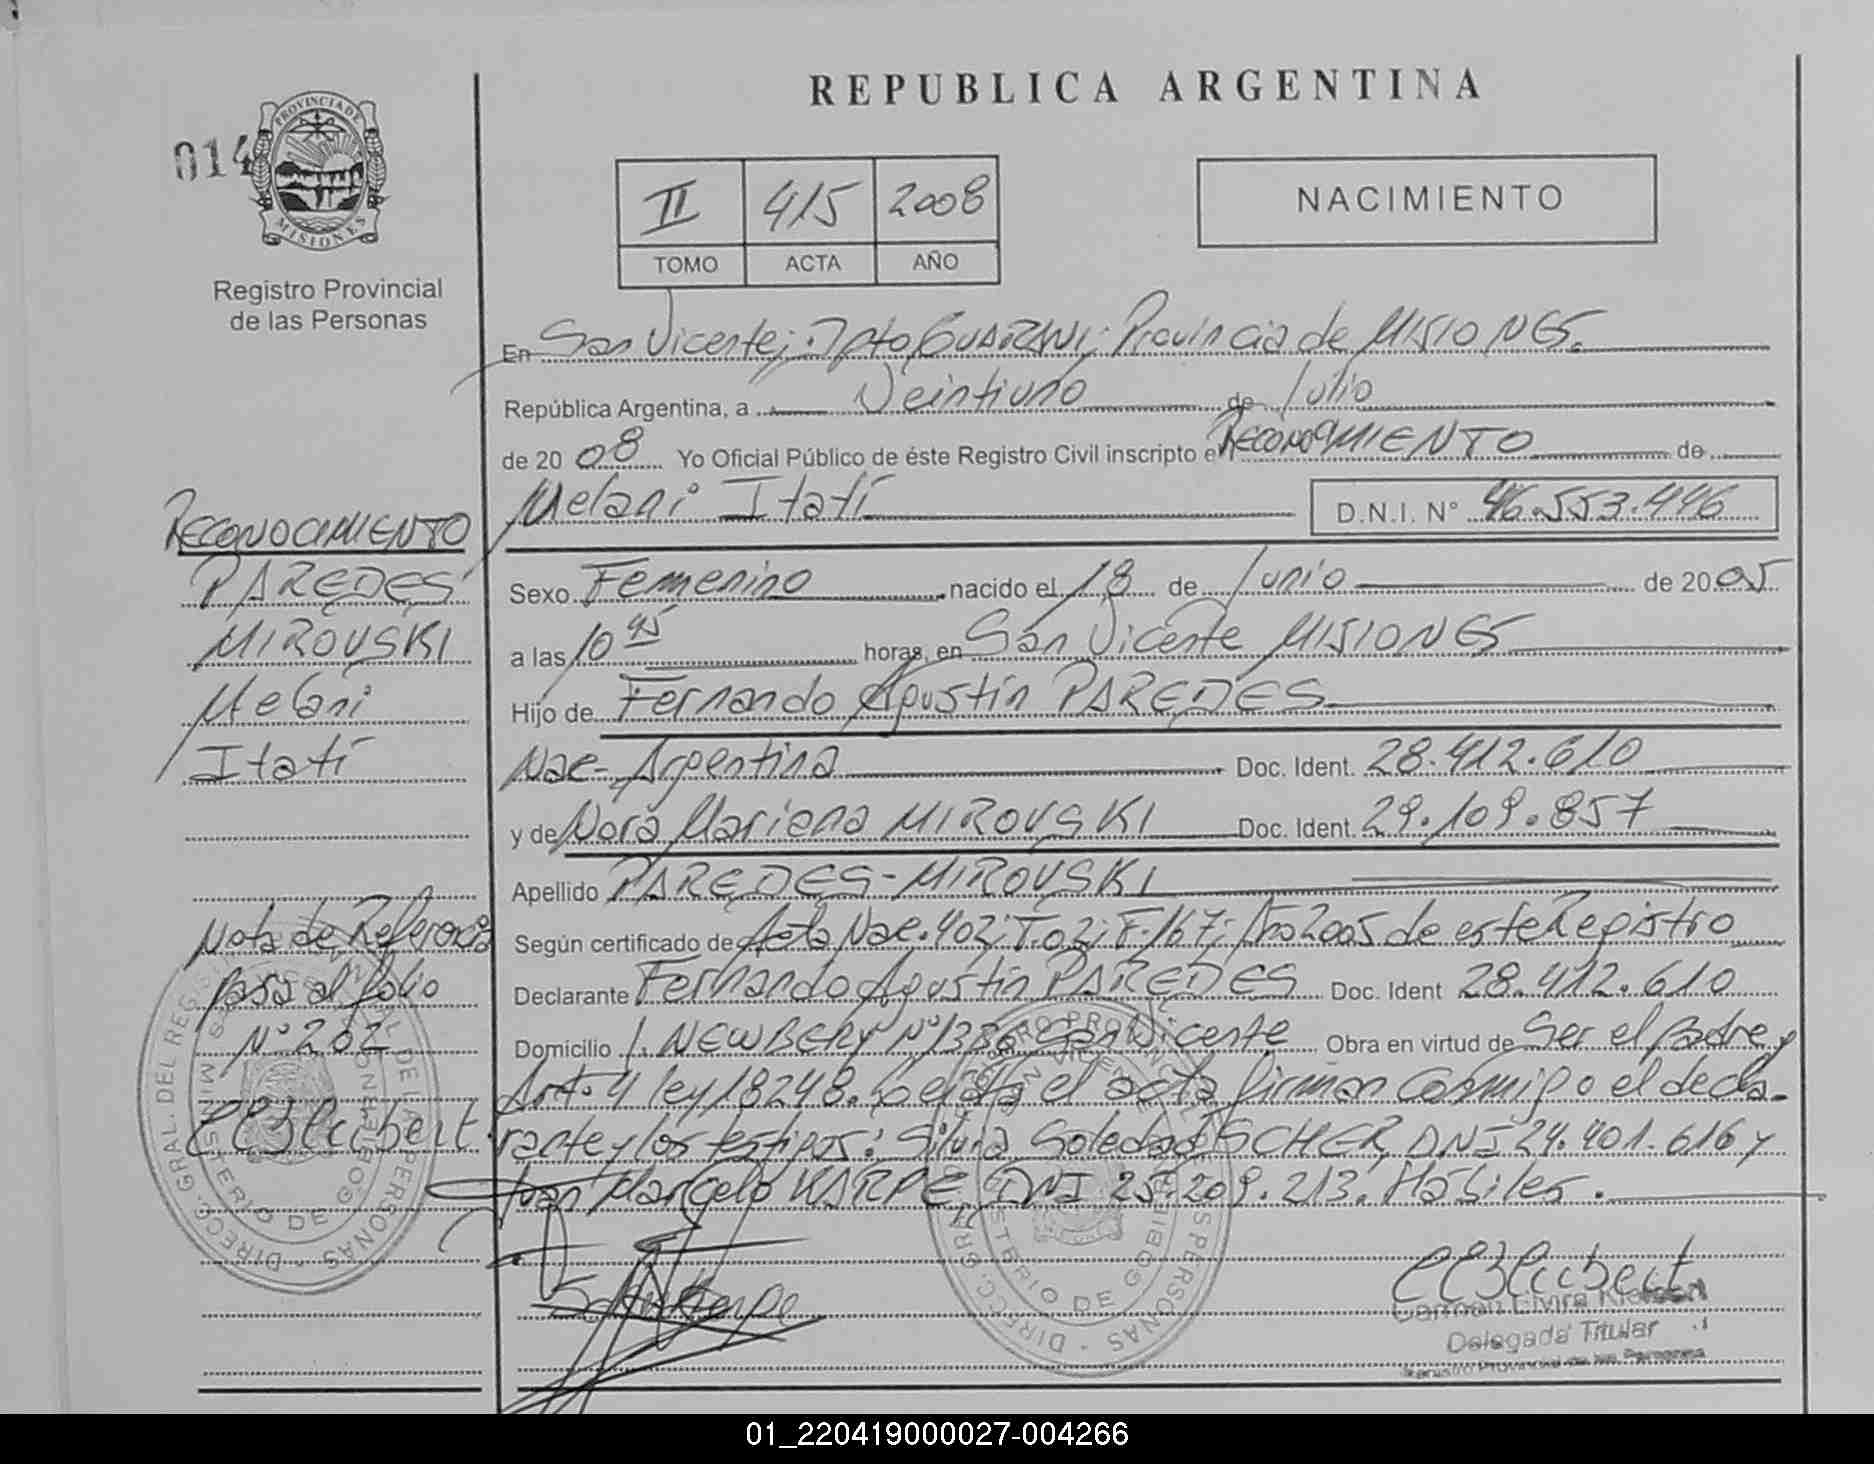 REPUBLICA ARGENTINA
014
PROVINCIA DE
MISIONES
Registro Provincial
de las Personas
II 415 2008
TOMO ACTA AÑO
NACIMIENTO
En San Vicente; Dpto GUARANI; Provincia de MISIONES.
República Argentina, a Veintiuno de Julio
de 2008 Yo Oficial Público de éste Registro Civil inscripto e RECONOCIMIENTO de
Melani Itatí D.N.I. N° 46.553.446
Sexo Femenino nacido el 18 de Junio de 2005
a las 10 45 horas, en San Vicente MISIONES
Hijo de Fernando Agustín PAREDES
Nac- Argentina Doc. Ident. 28.412.610
y de Nora Mariana MIROVSKI Doc. Ident. 29.109.857
Apellido PAREDES-MIROVSKI
Según certificado de Acta Nac. 402; T. 02; F-167; Año 2005 de este Registro
Declarante Fernando Agustín PAREDES Doc. Ident 28.412.610
Domicilio J. NEWBERY N° San Vicente Obra en virtud de Ser el padre y
Art. 4 ley 18248. el acta firman conmigo el decla-
rante y los testigos: Silvia Soledad SCHER, DNI 24.401.616 y
Juan Marcelo KARPE DNI 25.209.213. Hábiles.
RECONOCIMIENTO
PAREDES
MIROVSKI
Melani
Itatí
Nota de Referencia
pasa al folio
N° 202
DIRECC. GRAL. DEL REGISTRO PROVINCIAL DE LAS PERSONAS
MINISTERIO DE GOBIERNO
Carmen Elvira
Delegada Titular
Registro Provincial de las Personas
01_220419000027-004266